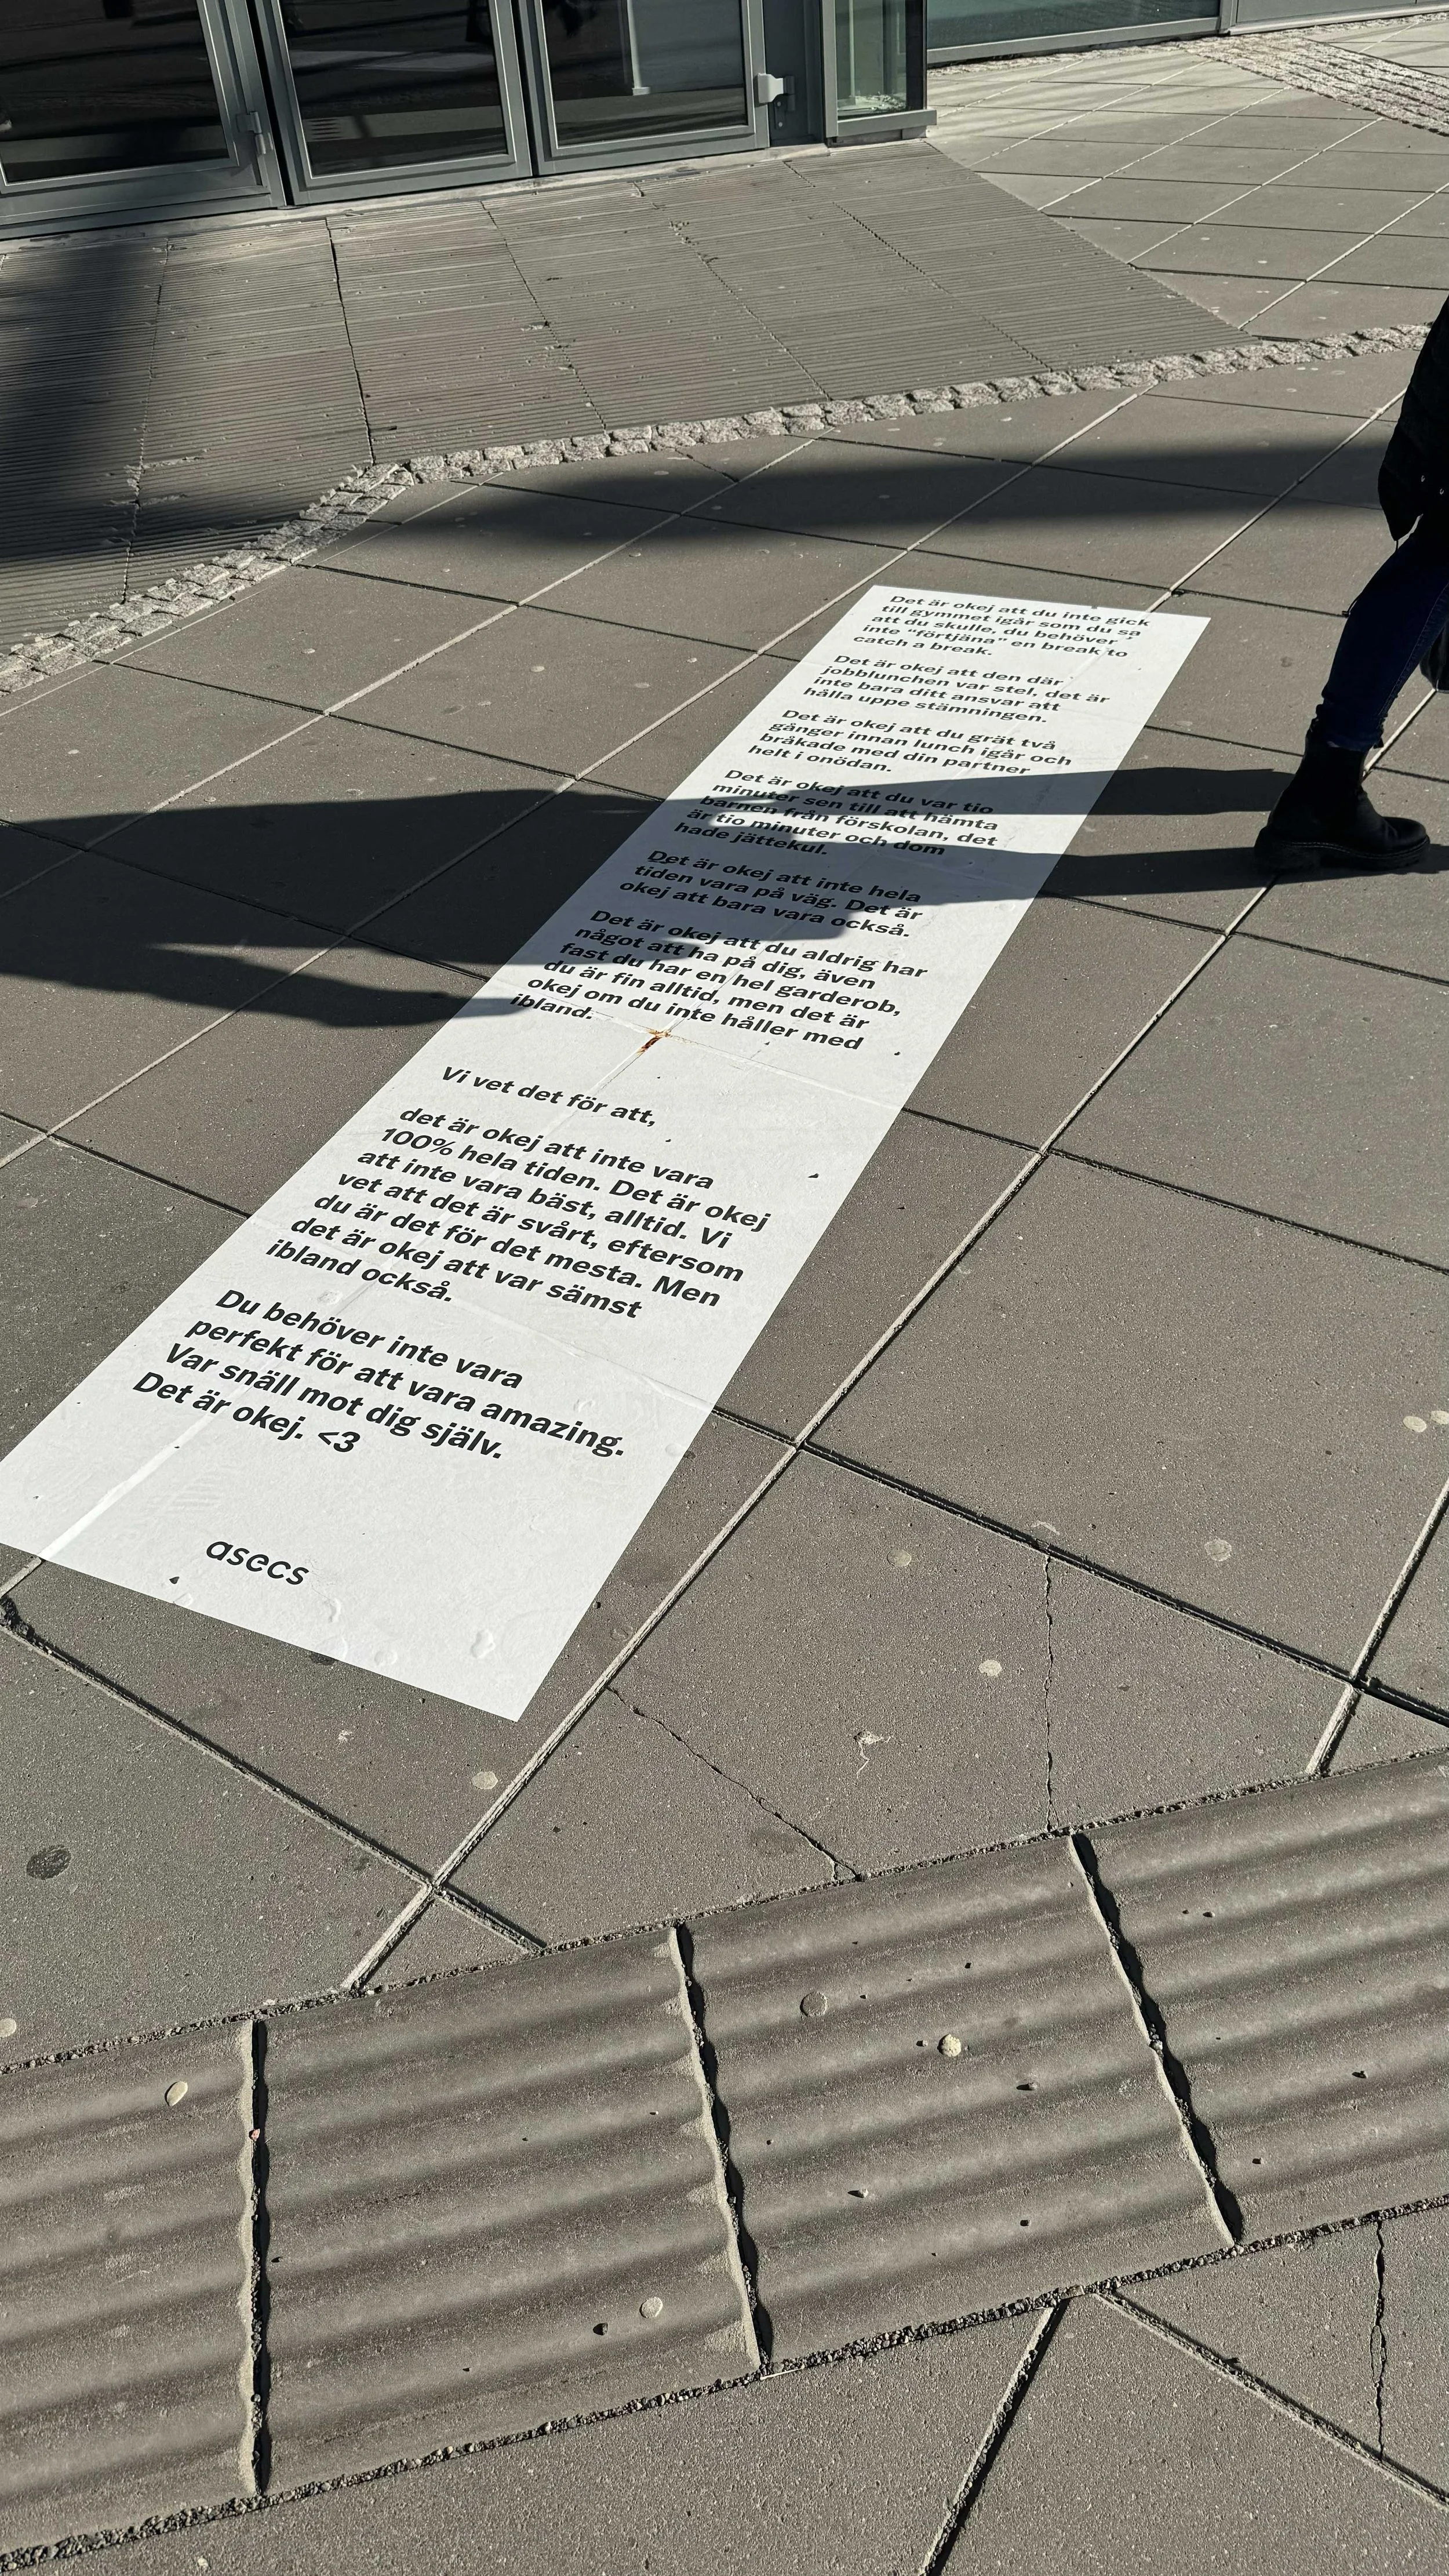 Det är okej att du inte gick
till gymmet igår som du sa
att du skulle, du behöver
inte “förtjäna” en break to
catch a break.
Det är okej att den där
jobblunchen var stel, det är
inte bara ditt ansvar att
hålla uppe stämningen.
Det är okej att du grät två
gånger innan lunch igår och
bråkade med din partner
helt i onödan.
Det är okej att du var tio
minuter sen till att hämta
barnen från förskolan, det
är tio minuter och dom
hade jättekul.
Det är okej att inte hela
tiden vara på väg. Det är
okej att bara vara också.
Det är okej att du aldrig har
något att ha på dig, även
fast du har en hel garderob,
du är fin alltid, men det är
okej om du inte håller med
ibland.
Vi vet det för att,
det är okej att inte vara
100% hela tiden. Det är okej
att inte vara bäst, alltid. Vi
vet att det är svårt, eftersom
du är det för det mesta. Men
det är okej att var sämst
ibland också.
Du behöver inte vara
perfekt för att vara amazing.
Var snäll mot dig själv.
Det är okej. <3
asecs